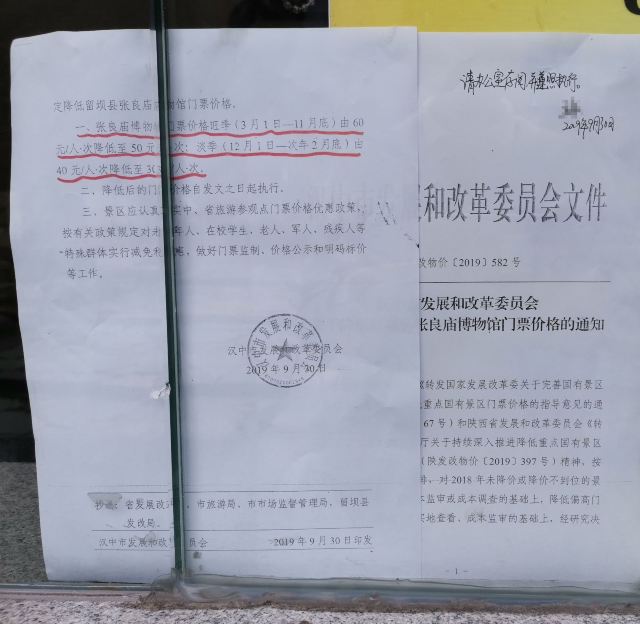 定降低留坝县张良庙博物馆门票价格。
一、张良庙博物馆门票价格旺季(3月1日—11月底)由60
元/人·次降低至50元 次;淡季(12月1日—次年2月底)由
40元/人·次降低至30 人·次。
二、降低后的门票价格自发文之日起执行。
三、景区应认真 实中、省旅游参观点门票价格优惠政策,
按有关政策规定对未 年人、在校学生、老人、军人、残疾人等
特殊群体实行减免 惠,做好门票监制、价格公示和明码标价
等工作。
汉中市发展和改革委员会
汉中市发展和改革委员会
2019年9月30日
抄送:省发展改 市旅游局、市市场监督管理局,留坝县
发改局。
汉中市发展和改 委员会 2019年9月30日印发
请办公室存阅并遵照执行。
2019年9月30日
展和改革委员会文件
发改物价〔2019〕582号
发展和改革委员会
张良庙博物馆门票价格的通知
《转发国家发展改革委关于完善国有景区
重点国有景区门票价格的指导意见的通
67号)和陕西省发展和改革委员会《转
厅关于持续深入推进降低重点国有景区
(陕发改物价〔2019〕397号)精神,按
,对2018年未降价或降价不到位的景
本监审或成本调查的基础上,降低偏高门
实地查看、成本监审的基础上,经研究决
- 1 -